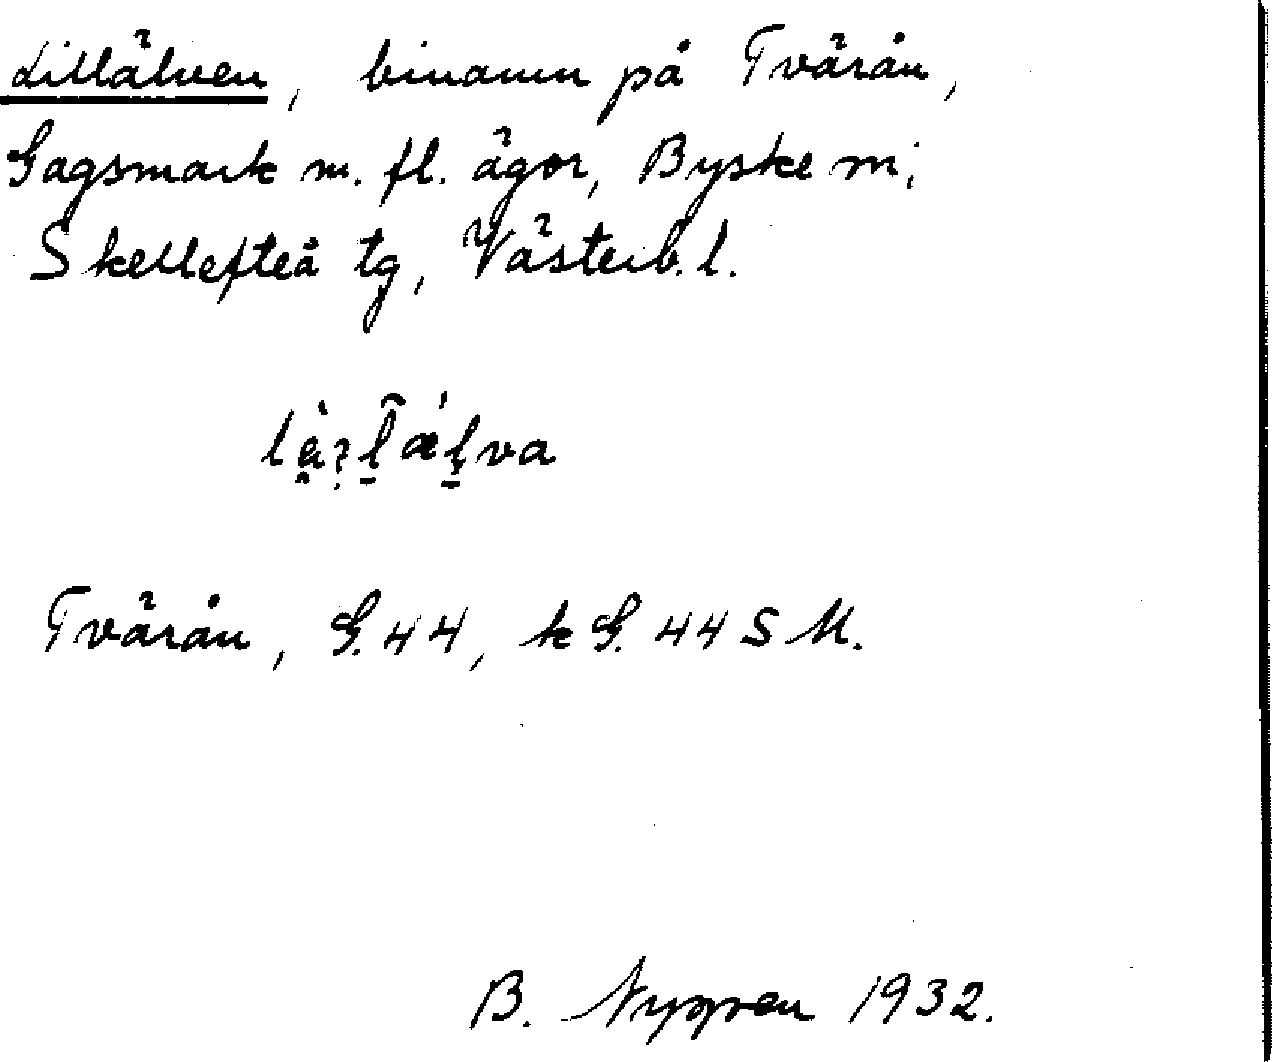 Lillälven, binamn på Tvärån,
Gagsmark m. fl. ägor, Byske m;
Skellefteå tg, Västerb. l.
Tvärån, G. 44, k G. 44 S M.
B. Nygren 1932.